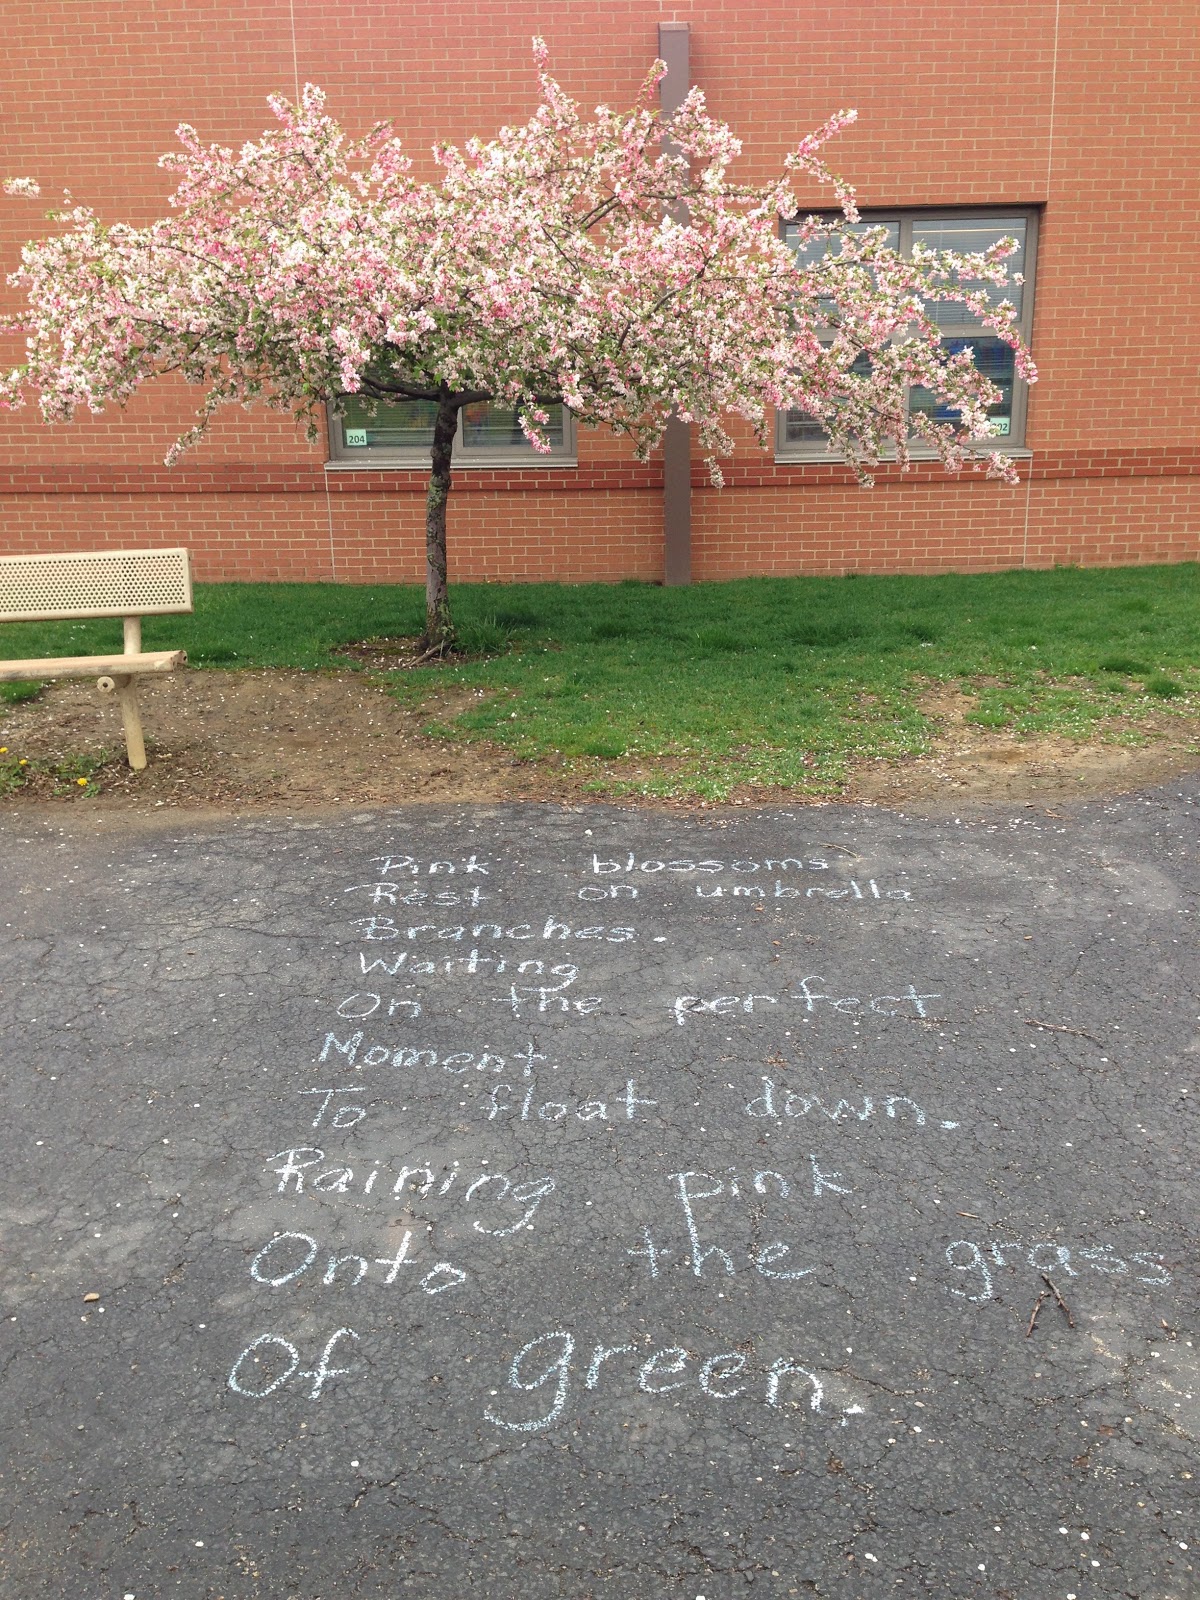 204
202
Pink blossoms
Rest on umbrella
Branches.
Waiting
On the perfect
Moment
To float down.
Raining pink
Onto the grass
Of green.